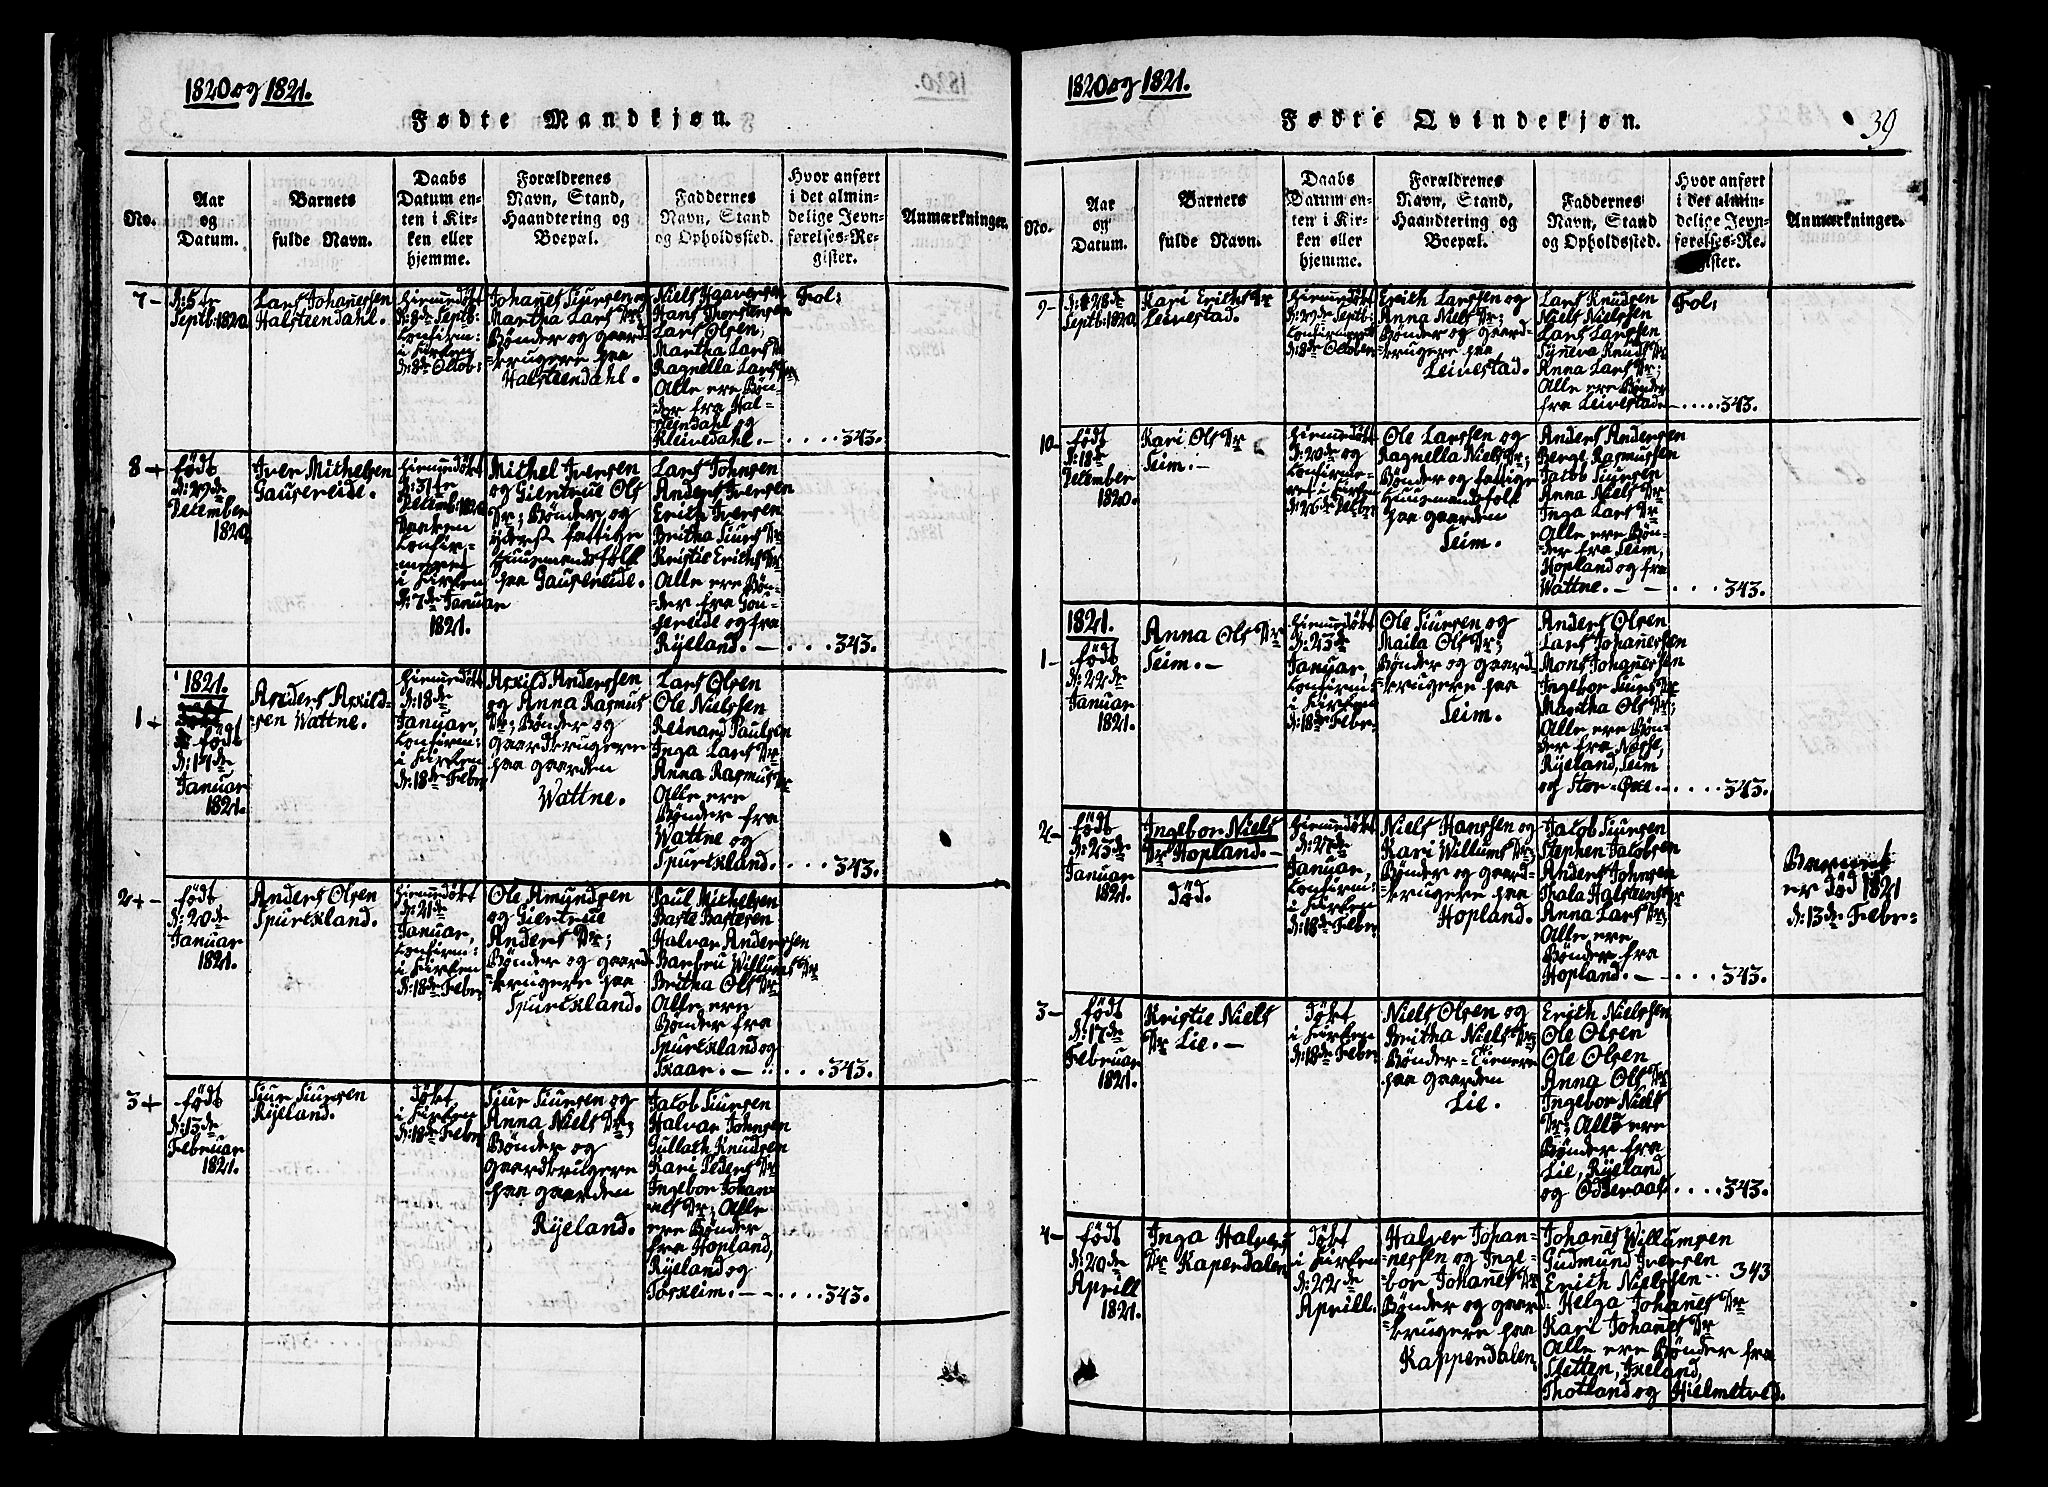 1820 og 1821.
Fødte Mandkjøn.
No.
Aar
og
Datum.
Barnets
fulde Navn.
Daabs
Datum en-
ten i Kir-
ken eller
hjemme.
Forældrenes
Navn, Stand,
Haandtering og
Boepæl.
Faddernes
Navn, Stand
og Opholdssted.
Hvor anført
i det almin-
delige Jevn-
førelses-Re-
gister.
Anmærkninger.
7-
d: 5te
Septb: 1820
Lars Johanessen
Halsteendahl.
Hiemmedøbt
d: 8de Septb:
Confirm:
i Kirken
d: 8de Octob:
Johanes Siursen og
Martha Lars Dr
Bønder og gaard-
-brugere paa
Halsteendahl.
Niels Haaversen
Hans Thorstensen
Lars Olsen,
Martha Lars Dr
Ragnella Lars Dr
Alle ere Bøn-
der fra Hal-
steindahl og
Kleivedahl. -
Fol:
. . . . 343.
8+
født
d: 29de
December
1820.
Iver Michelsen
Gausereide.
Hiemmedøbt
d: 31te
Decemb: 1820
Daaben
Confir-
-meret
i Kirken
d: 7de Januar
1821.
Michel Iversen
og Giertrue Ols
Dr; Bønder og
yderst fattige
Huusmandsfolk
paa Gausereide.
Lars Johnsen
Anders Iversen
Erich Iversen
Britha Siurs Dr
Kristie Erichs Dr
Alle ere Bøn-
-der fra Gou-
sereide og fra
Ryeland. -
. . . 343.
1+
1821.
født
d: 14de
Januar
1821.
Anders Arild-
sen Wattne.
Hiemmedøbt
d: 18de
Januar,
Confirm:
i Kirken
d: 18de Febr:
Arild Anderssen
og Anna Rasmus
Dr; Bønder og
gaardbrugere
paa gaarden
Wattne.
Lars Olsen
Ole Nielssen
Reinard Paulsen
Inga Lars Dr
Anna Rasmus Dr
Alle ere
Bønder fra
Wattne og
Spurckland.
. . . 343.
2+-
født
d: 20de
Januar
1821.
Anders Olsen
Spurckland.
Hiemmedøbt
d: 21de
Januar,
Confirm:
i Kirken
d: 18de Febr:
Ole Amundsen
og Giertrue
Anders Dr;
Bønder og gaard
-brugere paa
Spurckland.
Paul Michelsen
Baste Bastesen
Halvar Anderssen
Barbru Willums Dr
Britha Ols Dr
Alle ere
Bønder fra
Spurckland og
Skaar. -
. . . 343.
3+
født
d: 13de
Februar
1821.
Siur Siursen
Ryeland.
Døbt
i Kirken
d: 18de Febr:
Siur Siursen og
Anna Niels Dr;
Bønder og
gaardbrugere
paa gaarden
Ryeland.
Jacob Siursen
Halvar Johnsen
Gullach Knudsen
Kari Peders Dr
Ingebor Johan-
nes Dr; Alle
ere Bønder
fra Hopland,
Ryeland og
Torheim. - -
. . . . 343.
1820 og 1821.
Fødte Qvindekjøn.
39
No.
Aar
og
Datum.
Barnets
fulde Navn.
Daabs
Datum en-
ten i Kir-
ken eller
hjemme.
Forældrenes
Navn, Stand,
Haandtering og
Boepæl.
Faddernes
Navn, Stand
og Opholdssted.
Hvor anført
i det almin-
delige Jevn-
førelses-Re-
gister.
Anmærkninger.
9-
d: 28de
Septb: 1820.
Kari Erichs Dr
Leivestad.
Hiemmedøbt
d: 29de Septb:
Confirmeret
d: 8de October
Erich Larssen og
Anna Niels Dr;
Bønder og gaard-
-brugere paa
Leivestad.
Lars Knudsen
Niels Nielssen
Lars Larssen
Syneva Knuds Dr
Anna Lars Dr;
Alle ere Bønder
fra Leivestad
Fol:
- . . . . . 343.
10-
født
d: 18de
December
1820.
Kari Ols Dr
Seim. -
Hiemmedøbt
d: 20de og
Confirme-
ret i Kirken
d: 26de Decbr
Ole Larssen og
Ragnella Niels Dr;
Bønder og fattige
Huusmandsfolk
paa gaarden
Seim.
Anders Andersen
Berge Rasmussen
Jacob Siursen
Anna Niels Dr
Inga Lars Dr
Alle ere Bøn-
der fra Seim,
Hopland og fra
Wattne. - -
. . . . 343.
1821.
1-
født
d: 22de
Januar
1821.
Anna Ols Dr
Seim. -
Hiemmedøbt
d: 23de
Januar,
Confirm:
i Kirken
d: 18de Febr:
Ole Siursen og
Maila Ols Dr;
Bønder og gaard-
-brugere paa
Seim.
Anders Olsen
Lars Johanessen
Mons Johanessen
Ingebor Siurs Dr
Martha Ols Dr;
Alle ere Bøn-
der fra Nesse,
Ryeland, Seim
og Stor-Oxe. -
. . . . 343.
2-
født
d: 23de
Januar
1821.
Ingebor Niels
Dr Hopland. -
Død.
Hiemmedøbt
d: 27de
Januar,
Confirm:
i Kirken
d: 18de Febr:
Niels Hanssen og
Kari Willums Dr;
Bønder og gaard-
-brugere paa
Hopland.
Jacob Siursen
Stephen Jacobsen
Anders Johnsen
Thala Halsteens Dr
Anna Lars Dr;
Alle ere
Bønder fra
Hopland. -
- . . . 343.
Barnet
er død 1821
d: 13de Febr-
3-
født
d: 17de
Februar
1821.
Kristie Niels
Dr Lie. -
Døbt
i Kirken
d: 18de Febr:
Niels Olsen og
Britha Niels Dr;
Bønder-Tienere
paa gaarden
Lie.
Erich Nielssen
Ole Olsen
Ole Olsen
Anna Ols Dr
Ingebor Niels
Dr; Alle ere
Bønder fra
Lie, Ryeland
og Odderaas
. . . . 343.
4-
født
d: 20de
Aprill
1821.
Inga Halvers
Dr Kapendalen
Døbt
i Kirken
d: 22de
Aprill.
Halver Johan-
nessen og Inge-
-bor Johanes Dr
Bønder og gaard-
-brugere paa
Kappendalen
Johanes Willumsen
Gudmund Iversen
Erich Nielssen . . 343
Helga Johanes Dr
Kari Johanes Dr
Alle ere Bønder fra
Sletten, Ixeland,
Thotland og Hielmetved.